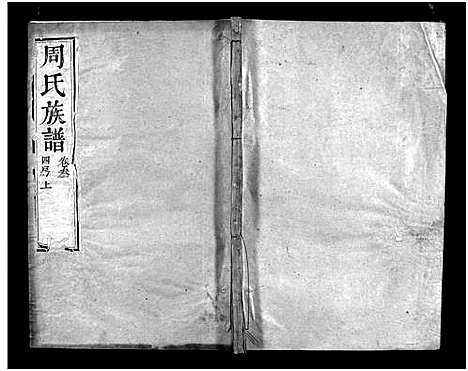 周氏族譜
卷叁
四房上